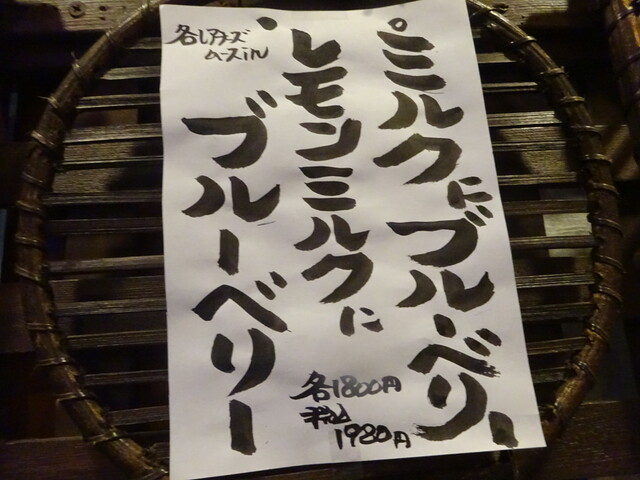 ◦ミルクにブルーベリー
◦レモンミルクに
ブルーベリー
各レアチーズ
ムースin
各1800円
税込
1980円